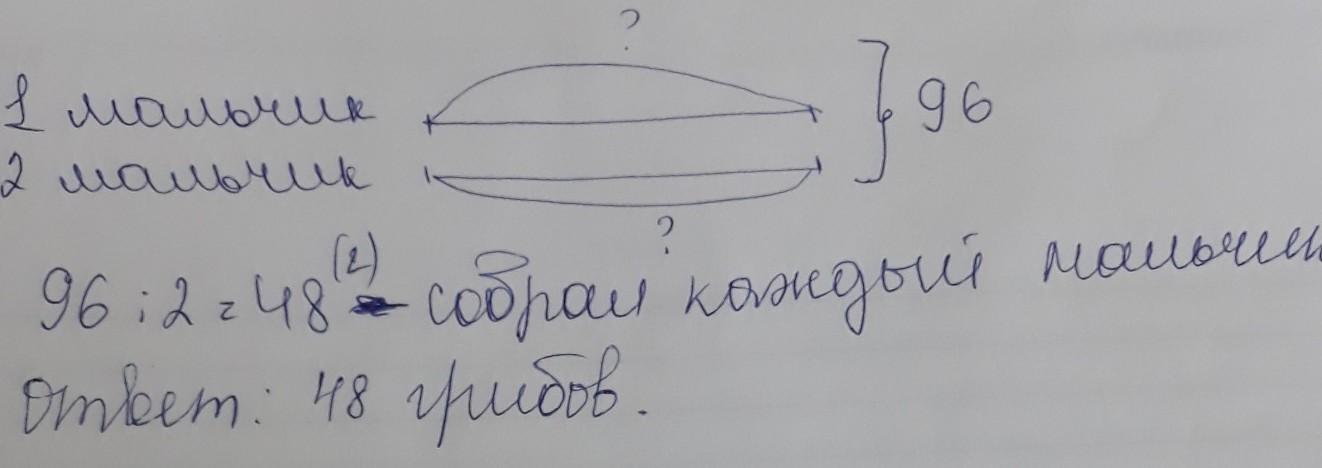 ?
1 мальчик
} 96
2 мальчик
?
96 : 2 = 48 (г) - собрал каждый мальчик
Ответ: 48 грибов.